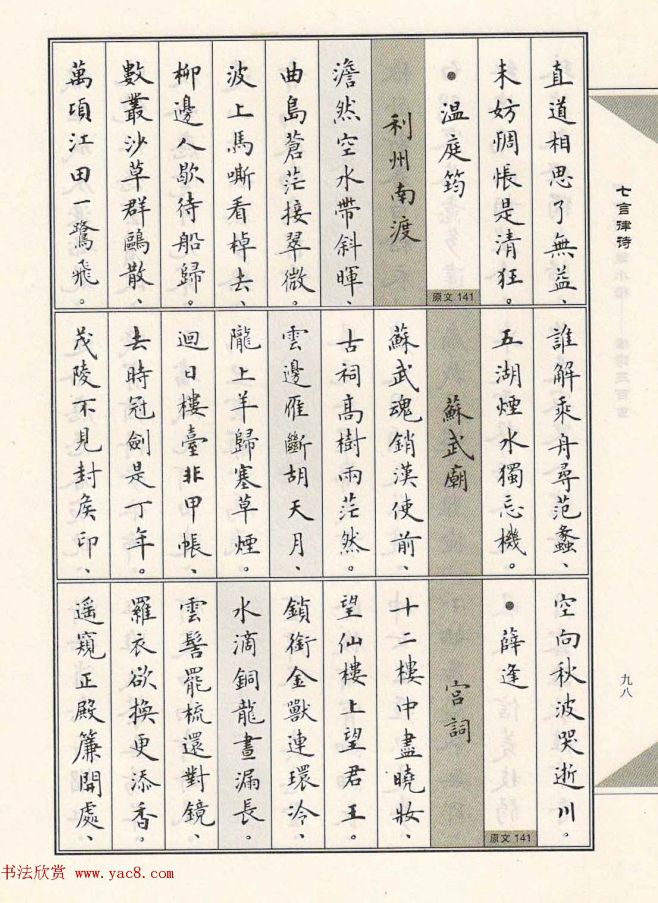 七言律詩
九八
直道相思了無益、
未妨惆悵是清狂。
●溫庭筠
原文141
利州南渡
澹然空水帶斜暉、
曲島蒼茫接翠微。
波上馬嘶看棹去、
柳邊人歇待船歸。
數叢沙草群鷗散、
萬頃江田一鷺飛。
誰解乘舟尋范蠡、
五湖煙水獨忘機。
蘇武廟
蘇武魂銷漢使前、
古祠高樹兩茫然。
雲邊雁斷胡天月、
隴上羊歸塞草煙。
迴日樓臺非甲帳、
去時冠劍是丁年。
茂陵不見封侯印、
空向秋波哭逝川。
●薛逢
原文141
宮詞
十二樓中盡曉妝、
望仙樓上望君王。
鎖銜金獸連環冷、
水滴銅龍晝漏長。
雲髻罷梳還對鏡、
羅衣欲換更添香。
遥窺正殿簾開處、
书法欣赏 www.yac8.com